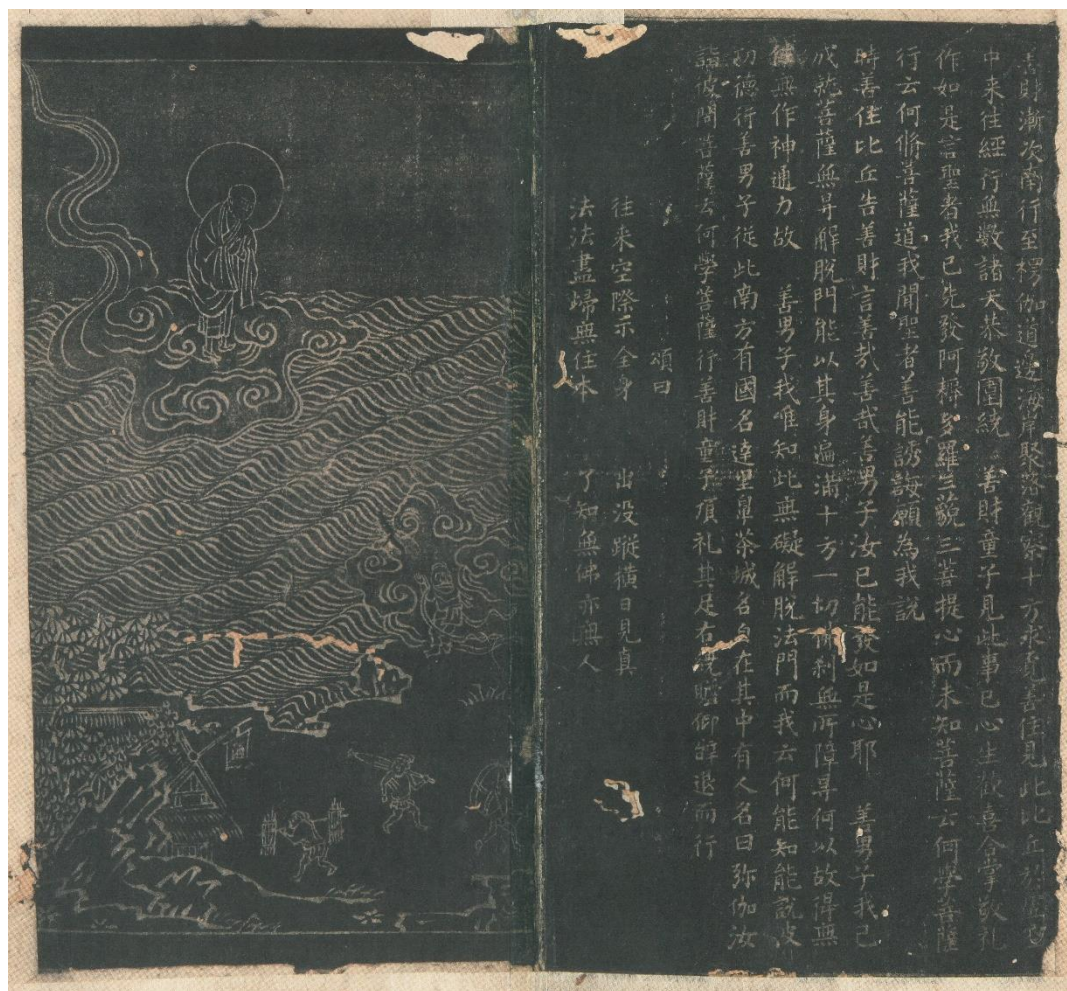 善財漸次南行至楞伽道邊海岸聚落觀察十方求覓善住見此比丘於虛空
中来往經行無數諸天恭敬圍繞　善財童子見此事已心生歓喜合掌敬礼
作如是言聖者我已先發阿耨多羅三藐三菩提心而未知菩薩云何學菩薩
行云何脩菩薩道我聞聖者善能誘誨願為我說
時善住比丘告善財言善哉善哉善男子汝已能發如是心耶　善男子我已
成就菩薩無㝵解脫門能以其身遍滿十方一切佛刹無所障㝵何以故得無
無作神通力故　善男子我唯知此無礙解脫法門而我云何能知能說彼
功德行善男子從此南方有國名達里鼻荼城名自在其中有人名曰弥伽汝
詣彼問菩薩云何學菩薩行善財童子頂礼其足右遶瞻仰辭退而行
頌曰
往来空際示全身　出没蹤橫日見真
法法盡歸無住本　了知無佛亦無人